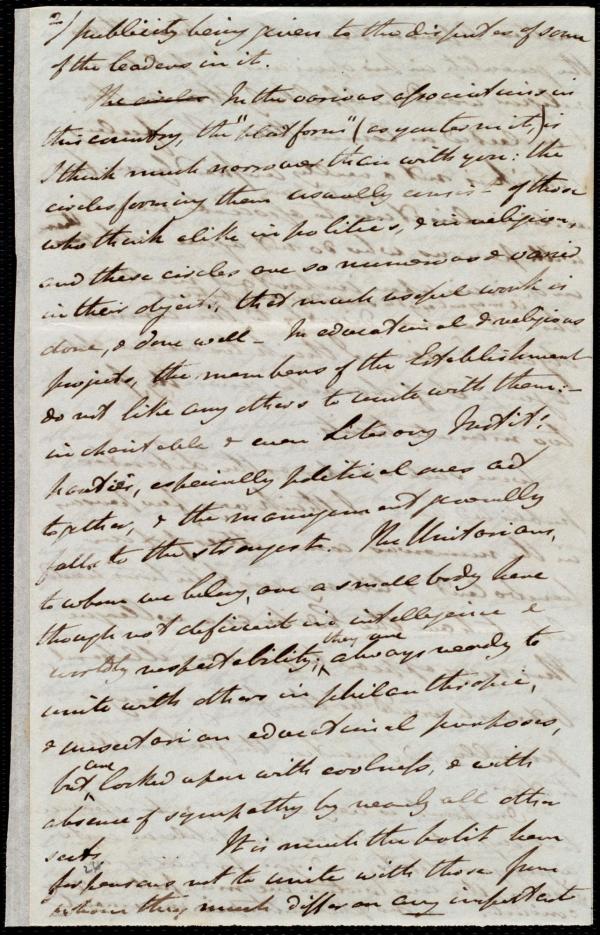 2/ publicity being given to the disputes of some
of the leaders in it.
The circles In the various associations in
this country, the "platform" (as you term it,) is
I think much narrower than with you: the
circles forming them usually consist of those
who think alike in politics, & in religion,
and these circles are so numerous & varied
in their objects, that much useful work is
done, & done well - In educational & religious
projects, the members of the Establishment
do not like any others to unite with them:-
in charitable & even Literary Instit:s
parties, especially political ones act
together, & the management generally
falls to the strongest. The Unitarians,
to whom we belong, are a small body here
though not deficient in intelligence &
worldly respectability; they are always ready to
unite with others in philanthropic,
& unsectarian educational purposes,
but are looked upon with coolness, & with
absence of sympathy by nearly all other
sects. It is much the habit here
for persons not to unite with those from
whom they much differ on any important